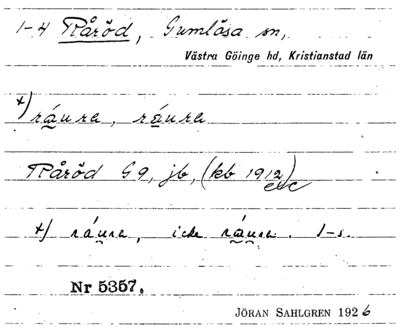 1-4 Råröd, Gumlösa sn,
Västra Göinge hd, Kristianstad län
x) ráu̯ra, ráu̯ra
Råröd G9, jb, (kb 1912)
etc
x) ráu̯ra, icke ráu̯ra. 1-s.
Nr 5357.
JÖRAN SAHLGREN 1926